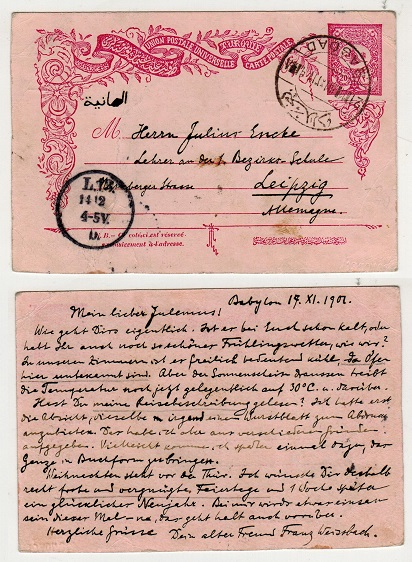 UNION POSTALE UNIVERSELLE
CARTE POSTALE
BAGDAD 1
المانية
M. Herrn Julius Encke
Lehrer an der 1. Bezirks-Schule
berger Strasse
Leipzig
Allemagne.
14 12
4-5V.
N.B.- Ce côté est réservé
exclusivement à l'adresse.
Babylon 19. XI. 1901.
Mein lieber Julemus!
Wie geht Dirs eigentlich. Ist er bei Euch schon kalt, oder
habt Ihr auch noch so schönes Frühlingswetter, wie wir?
In unseren Zimmern ist es freilich bedeutend kühl, da Öfen
hier unbekannt sind. Aber der Sonnenschein draussen treibt
die Temperatur noch jetzt gelegentlich auf 30°C. u. darüber.
Hast Du meine Reisebeschreibung gelesen? Ich hatte erst
die Absicht, dieselbe in irgend einem Wurstblatt zum Abdruck
anzubieten. Das habe ich aber aus verschiedenen Gründen
aufgegeben. Vielleicht komme ich später einmal dazu, das
Ganze in Buchform zu bringen.
Weihnachten steht vor der Thür. Ich wünsche Dir deshalb
recht frohe und vergnügte Feiertage und 1 Woche später
ein glückliches Neujahr. Bei mir wirds etwas einsam
sein dieses Mal - na, das geht halt auch vorüber.
Herzliche Grüsse Dein alter Freund Franz Weissbach.